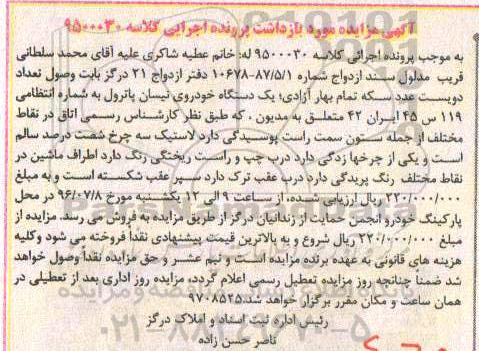 آگهی مزایده مورد بازداشت پرونده اجرایی کلاسه ۹۵۰۰۰۳۰
به موجب پرونده اجرائی کلاسه ۹۵۰۰۰۳۰ له: خانم عطیه شاکری علیه آقای محمد سلطانی
قریب مدلول سند ازدواج شماره ۱۰۶۷۸-۸۷/۵/۱ دفتر ازدواج ۲۱ درگز بابت وصول تعداد
دویست عدد سکه تمام بهار آزادی؛ یک دستگاه خودروی نیسان پاترول به شماره انتظامی
۱۱۹ س ۴۵ ایران ۴۲ متعلق به مدیون ، که طبق نظر کارشناس رسمی اتاق در نقاط
مختلف از جمله ستون سمت راست پوسیدگی دارد لاستیک سه چرخ شصت درصد سالم
است و یکی از چرخها زدگی دارد درب چپ و راست ریختگی رنگ دارد اطراف ماشین در
نقاط مختلف رنگ پریدگی دارد درب عقب ترک دارد سپر عقب شکسته است و به مبلغ
۲۲۰/۰۰۰/۰۰۰ ریال ارزیابی شده، از ساعت ۹ الی ۱۲ یکشنبه مورخ ۹۶/۰۷/۸ در محل
پارکینگ خودرو انجمن حمایت از زندانیان درگز از طریق مزایده به فروش می رسد. مزایده از
مبلغ ۲۲۰/۰۰۰/۰۰۰ ریال شروع و به بالاترین قیمت پیشنهادی نقداً فروخته می شود وکلیه
هزینه های قانونی به عهده برنده مزایده است و نیم عشر و حق مزایده نقداً وصول خواهد
شد ضمناً چنانچه روز مزایده تعطیل رسمی اعلام گردد، مزایده روز اداری بعد از تعطیلی در
همان ساعت و مکان مقرر برگزار خواهد شد.۹۷۰۸۵۲۵
رئیس اداره ثبت اسناد و املاک درگز
ناصر حسن زاده